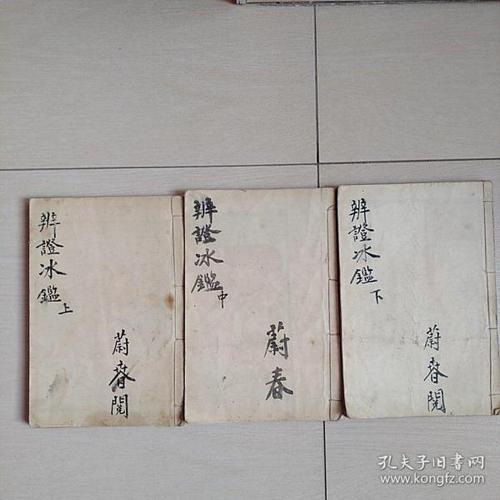 辨證冰鑑上
蔚春閱
辨證冰鑑中
蔚春
辨證冰鑑下
蔚春閱
孔夫子旧书网
www.kongfz.com